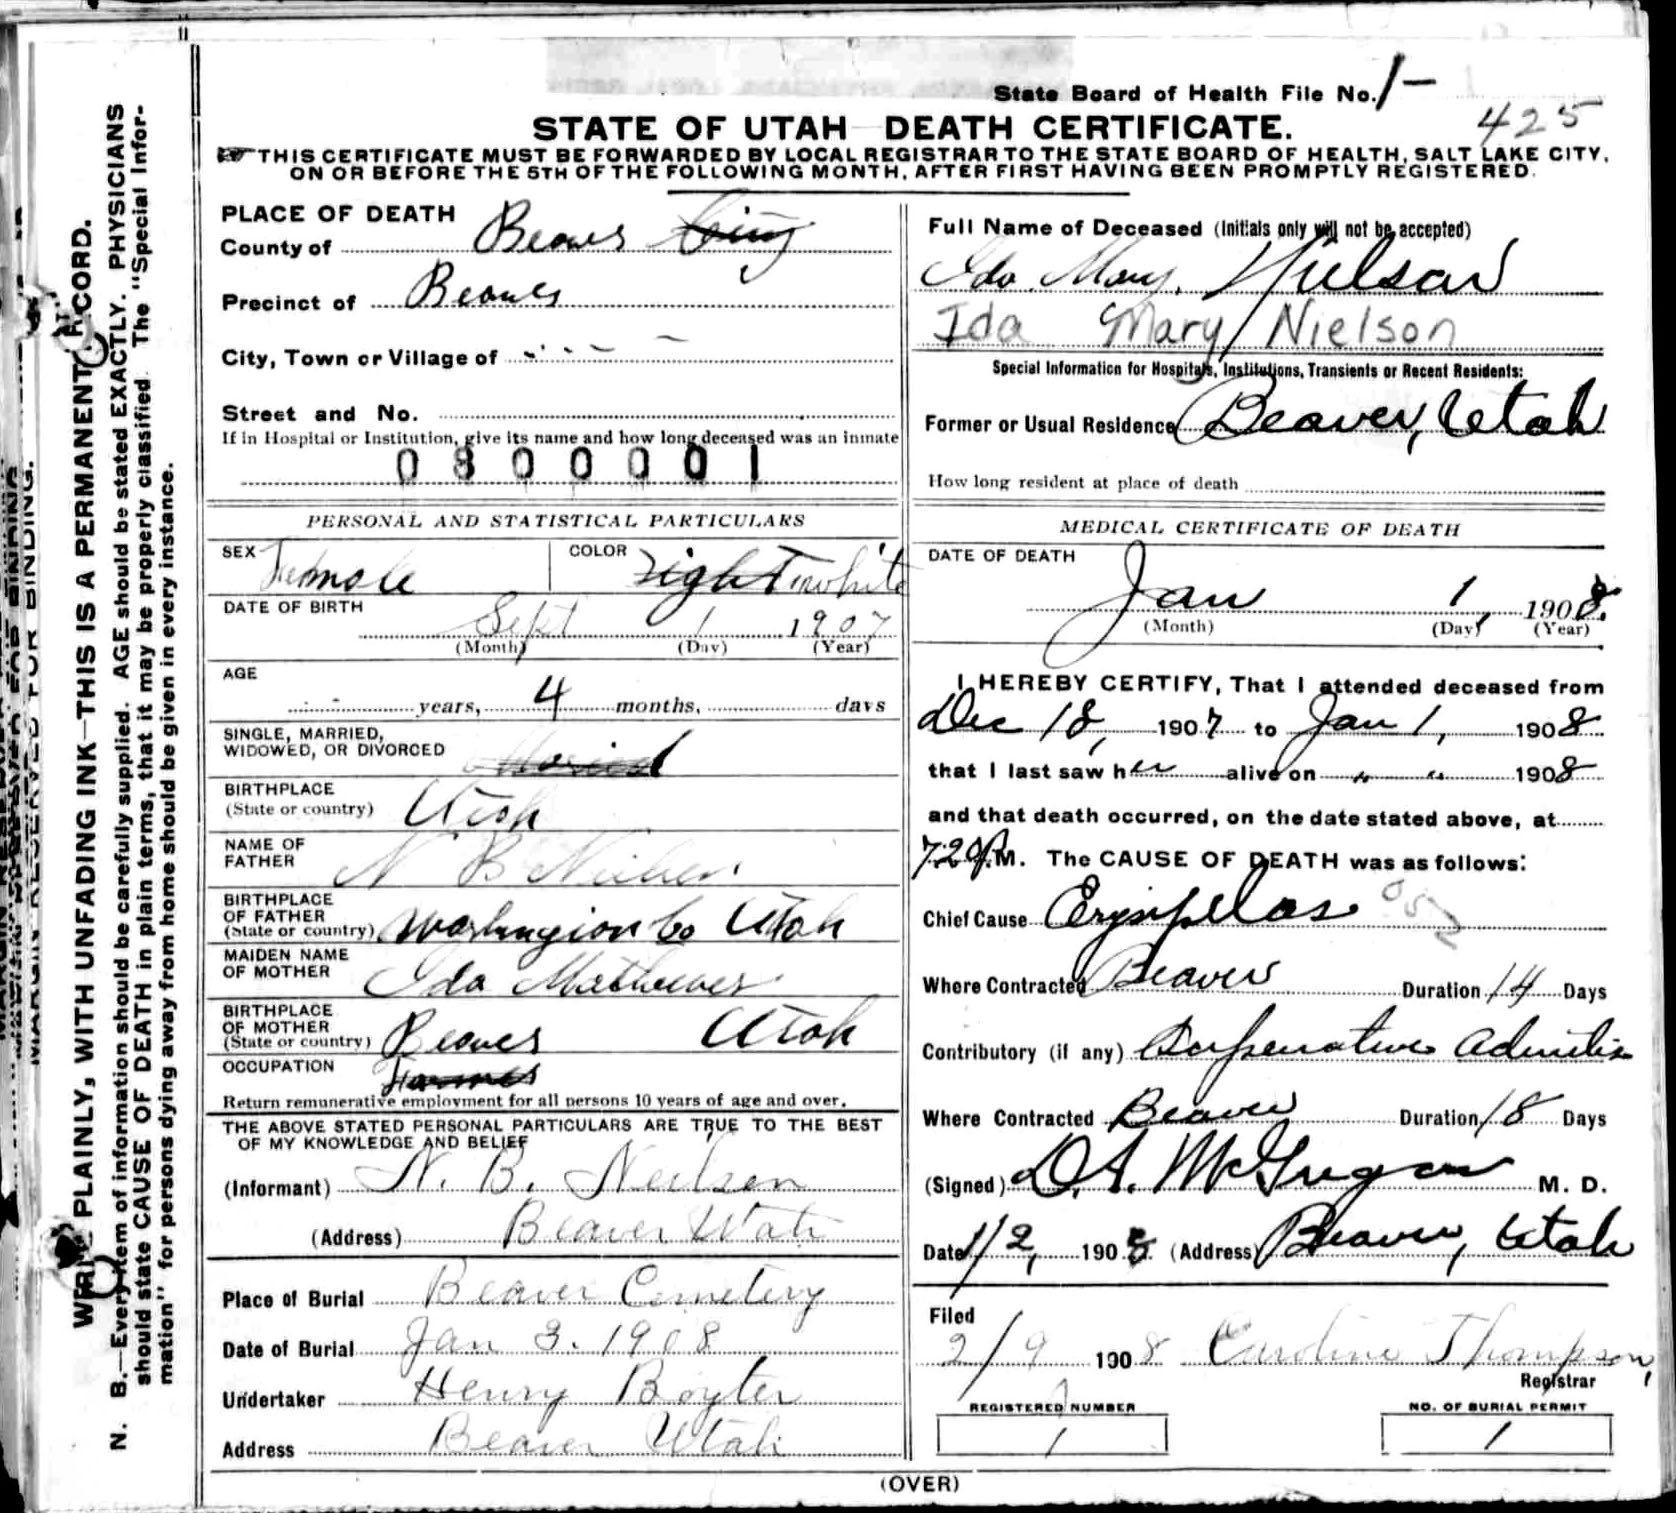 State Board of Health File No. 1-
425
STATE OF UTAH DEATH CERTIFICATE.
THIS CERTIFICATE MUST BE FORWARDED BY LOCAL REGISTRAR TO THE STATE BOARD OF HEALTH, SALT LAKE CITY,
ON OR BEFORE THE 5TH OF THE FOLLOWING MONTH, AFTER FIRST HAVING BEEN PROMPTLY REGISTERED.
MARGIN RESERVED FOR BINDING.
WRITE PLAINLY, WITH UNFADING INK—THIS IS A PERMANENT RECORD.
N. B.—Every item of information should be carefully supplied. AGE should be stated EXACTLY. PHYSICIANS
should state CAUSE OF DEATH in plain terms, that it may be properly classified. The "Special Infor-
mation" for persons dying away from home should be given in every instance.
PLACE OF DEATH
County of Beaver
Precinct of Beaver
City, Town or Village of
Street and No.
If in Hospital or Institution, give its name and how long deceased was an inmate
0800001
PERSONAL AND STATISTICAL PARTICULARS
SEX Female COLOR white
DATE OF BIRTH
Sept 1 1907
(Month) (Day) (Year)
AGE
years, 4 months, days
SINGLE, MARRIED,
WIDOWED, OR DIVORCED
BIRTHPLACE
(State or country) Utah
NAME OF
FATHER N B
BIRTHPLACE
OF FATHER
(State or country) Washington Co Utah
MAIDEN NAME
OF MOTHER Ida Mathews
BIRTHPLACE
OF MOTHER
(State or country) Beaver Utah
OCCUPATION Farmer
Return remunerative employment for all persons 10 years of age and over.
THE ABOVE STATED PERSONAL PARTICULARS ARE TRUE TO THE BEST
OF MY KNOWLEDGE AND BELIEF
(Informant) N. B. Neilsen
(Address) Beaver Utah
Place of Burial Beaver Cemetery
Date of Burial Jan 3. 1908
Undertaker Henry Boyter
Address Beaver Utah
Full Name of Deceased (Initials only will not be accepted)
Ida Mary
Ida Mary Nielson
Special Information for Hospitals, Institutions, Transients or Recent Residents:
Former or Usual Residence Beaver, Utah
How long resident at place of death
MEDICAL CERTIFICATE OF DEATH
DATE OF DEATH
Jan 1, 1908.
(Month) (Day) (Year)
I HEREBY CERTIFY, That I attended deceased from
Dec 18, 1907 to Jan 1, 1908
that I last saw her alive on " " 1908
and that death occurred, on the date stated above, at
7:20 P.M. The CAUSE OF DEATH was as follows:
Chief Cause Erysipelas
Where Contracted Beaver Duration 14 Days
Contributory (if any)
Where Contracted Beaver Duration 18 Days
(Signed) McGregor M. D.
Date 1/2, 1908. (Address) Beaver, Utah
Filed
2/9 1908 Caroline Thompson,
Registrar
REGISTERED NUMBER
1
NO. OF BURIAL PERMIT
1
(OVER)